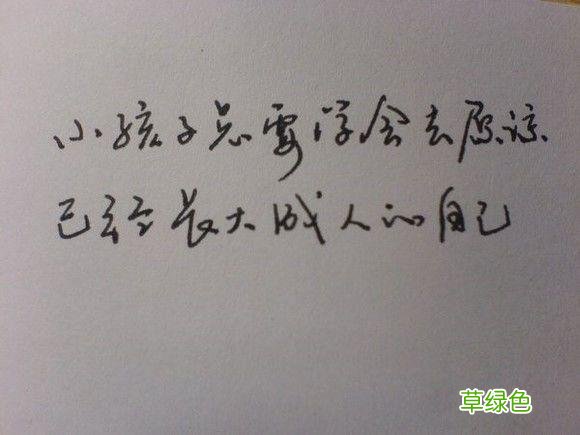 小孩子总要学会去原谅
已经长大成人的自己
草绿色